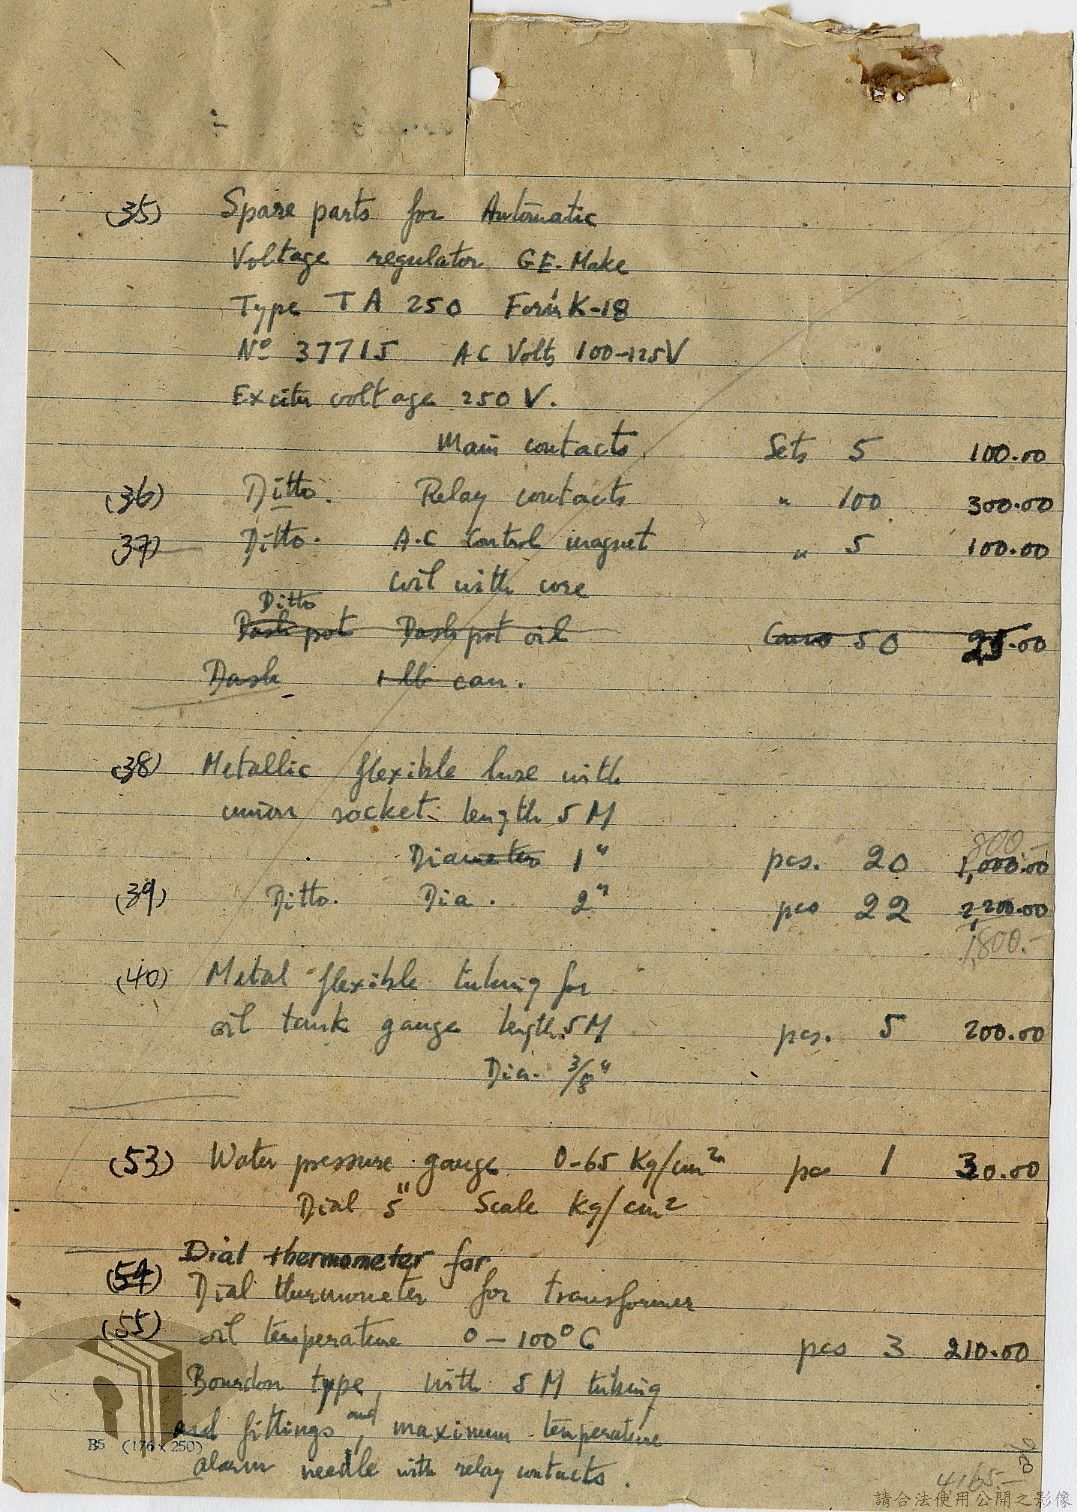 (35) Spare parts for Automatic
Voltage regulator GE. Make
Type TA 250 Form K-18
Nº 37715 AC Volts 100-125V
Exciter voltage 250 V.
Main contacts Sets 5 100.00
(36) Ditto. Relay contacts " 100 300.00
(37) Ditto. A.C Control magnet " 5 100.00
coil with core
Ditto
Dash pot Dash pot oil 50 25.00
Dash 1 lb can.
(38) Metallic flexible hose with
union socket length 5 M
800.-
Diameter 1" pcs. 20 1,000.00
(39) Ditto. Dia. 2" pcs 22 2,200.00
1,800.-
(40) Metal flexible tubing for
oil tank gauge length 5M pcs. 5 200.00
Dia. 3/8"
(53) Water pressure gauge 0-65 Kg/cm² pce 1 30.00
Dial 5" Scale Kg/cm²
Dial thermometer for
(54) Dial thermometer for transformer
(55) oil temperature 0-100°C pcs 3 210.00
Bourdon type, with 5 M tubing
and fittings, and maximum temperature
B5 (176×250)
alarm needle with relay contacts.
4165-
請合法使用公開之影像